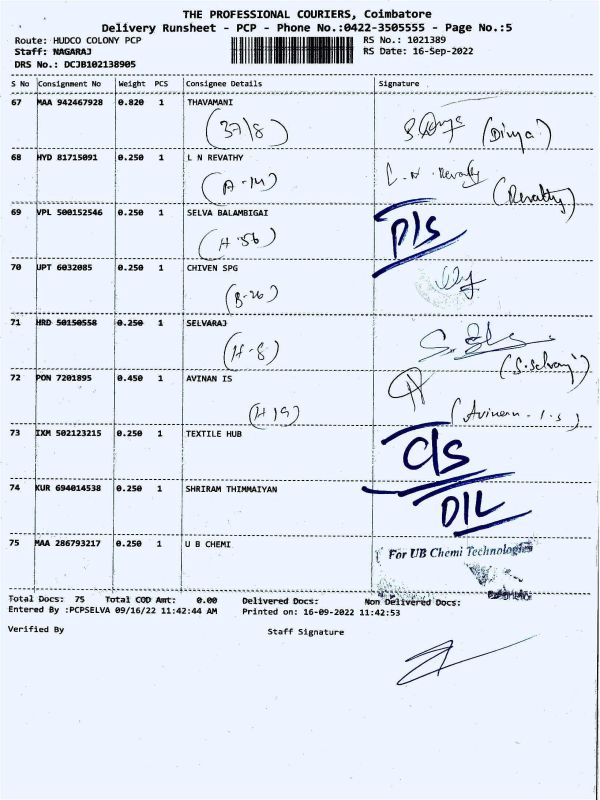 THE PROFESSIONAL COURIERS, Coimbatore
Delivery Runsheet - PCP - Phone No.:0422-3505555 - Page No.:5
Route: HUDCO COLONY PCP RS No.: 1021389
Staff: NAGARAJ RS Date: 16-Sep-2022
DRS No.: DCJB102138905
S No Consignment No Weight PCS Consignee Details Signature
67 MAA 942467928 0.820 1 THAVAMANI
(37/8) (Divya)
68 HYD 81715091 0.250 1 L N REVATHY L. N. Revathy
(A-14) (Revathy)
69 VPL 500152546 0.250 1 SELVA BALAMBIGAI D/S
(H-56)
70 UPT 6032085 0.250 1 CHIVEN SPG
(B-26)
71 HRD 50150558 0.250 1 SELVARAJ
(H-8) (S.Selvaraj)
72 PON 7201895 0.450 1 AVINAN IS
(H 19) (Avinan. I.S)
73 IXM 502123215 0.250 1 TEXTILE HUB C/S
74 KUR 694014538 0.250 1 SHRIRAM THIMMAIYAN D/L
75 MAA 286793217 0.250 1 U B CHEMI For UB Chemi Technologies
Total Docs: 75 Total COD Amt: 0.00 Delivered Docs: Non Delivered Docs:
Entered By :PCPSELVA 09/16/22 11:42:44 AM Printed on: 16-09-2022 11:42:53
Verified By Staff Signature